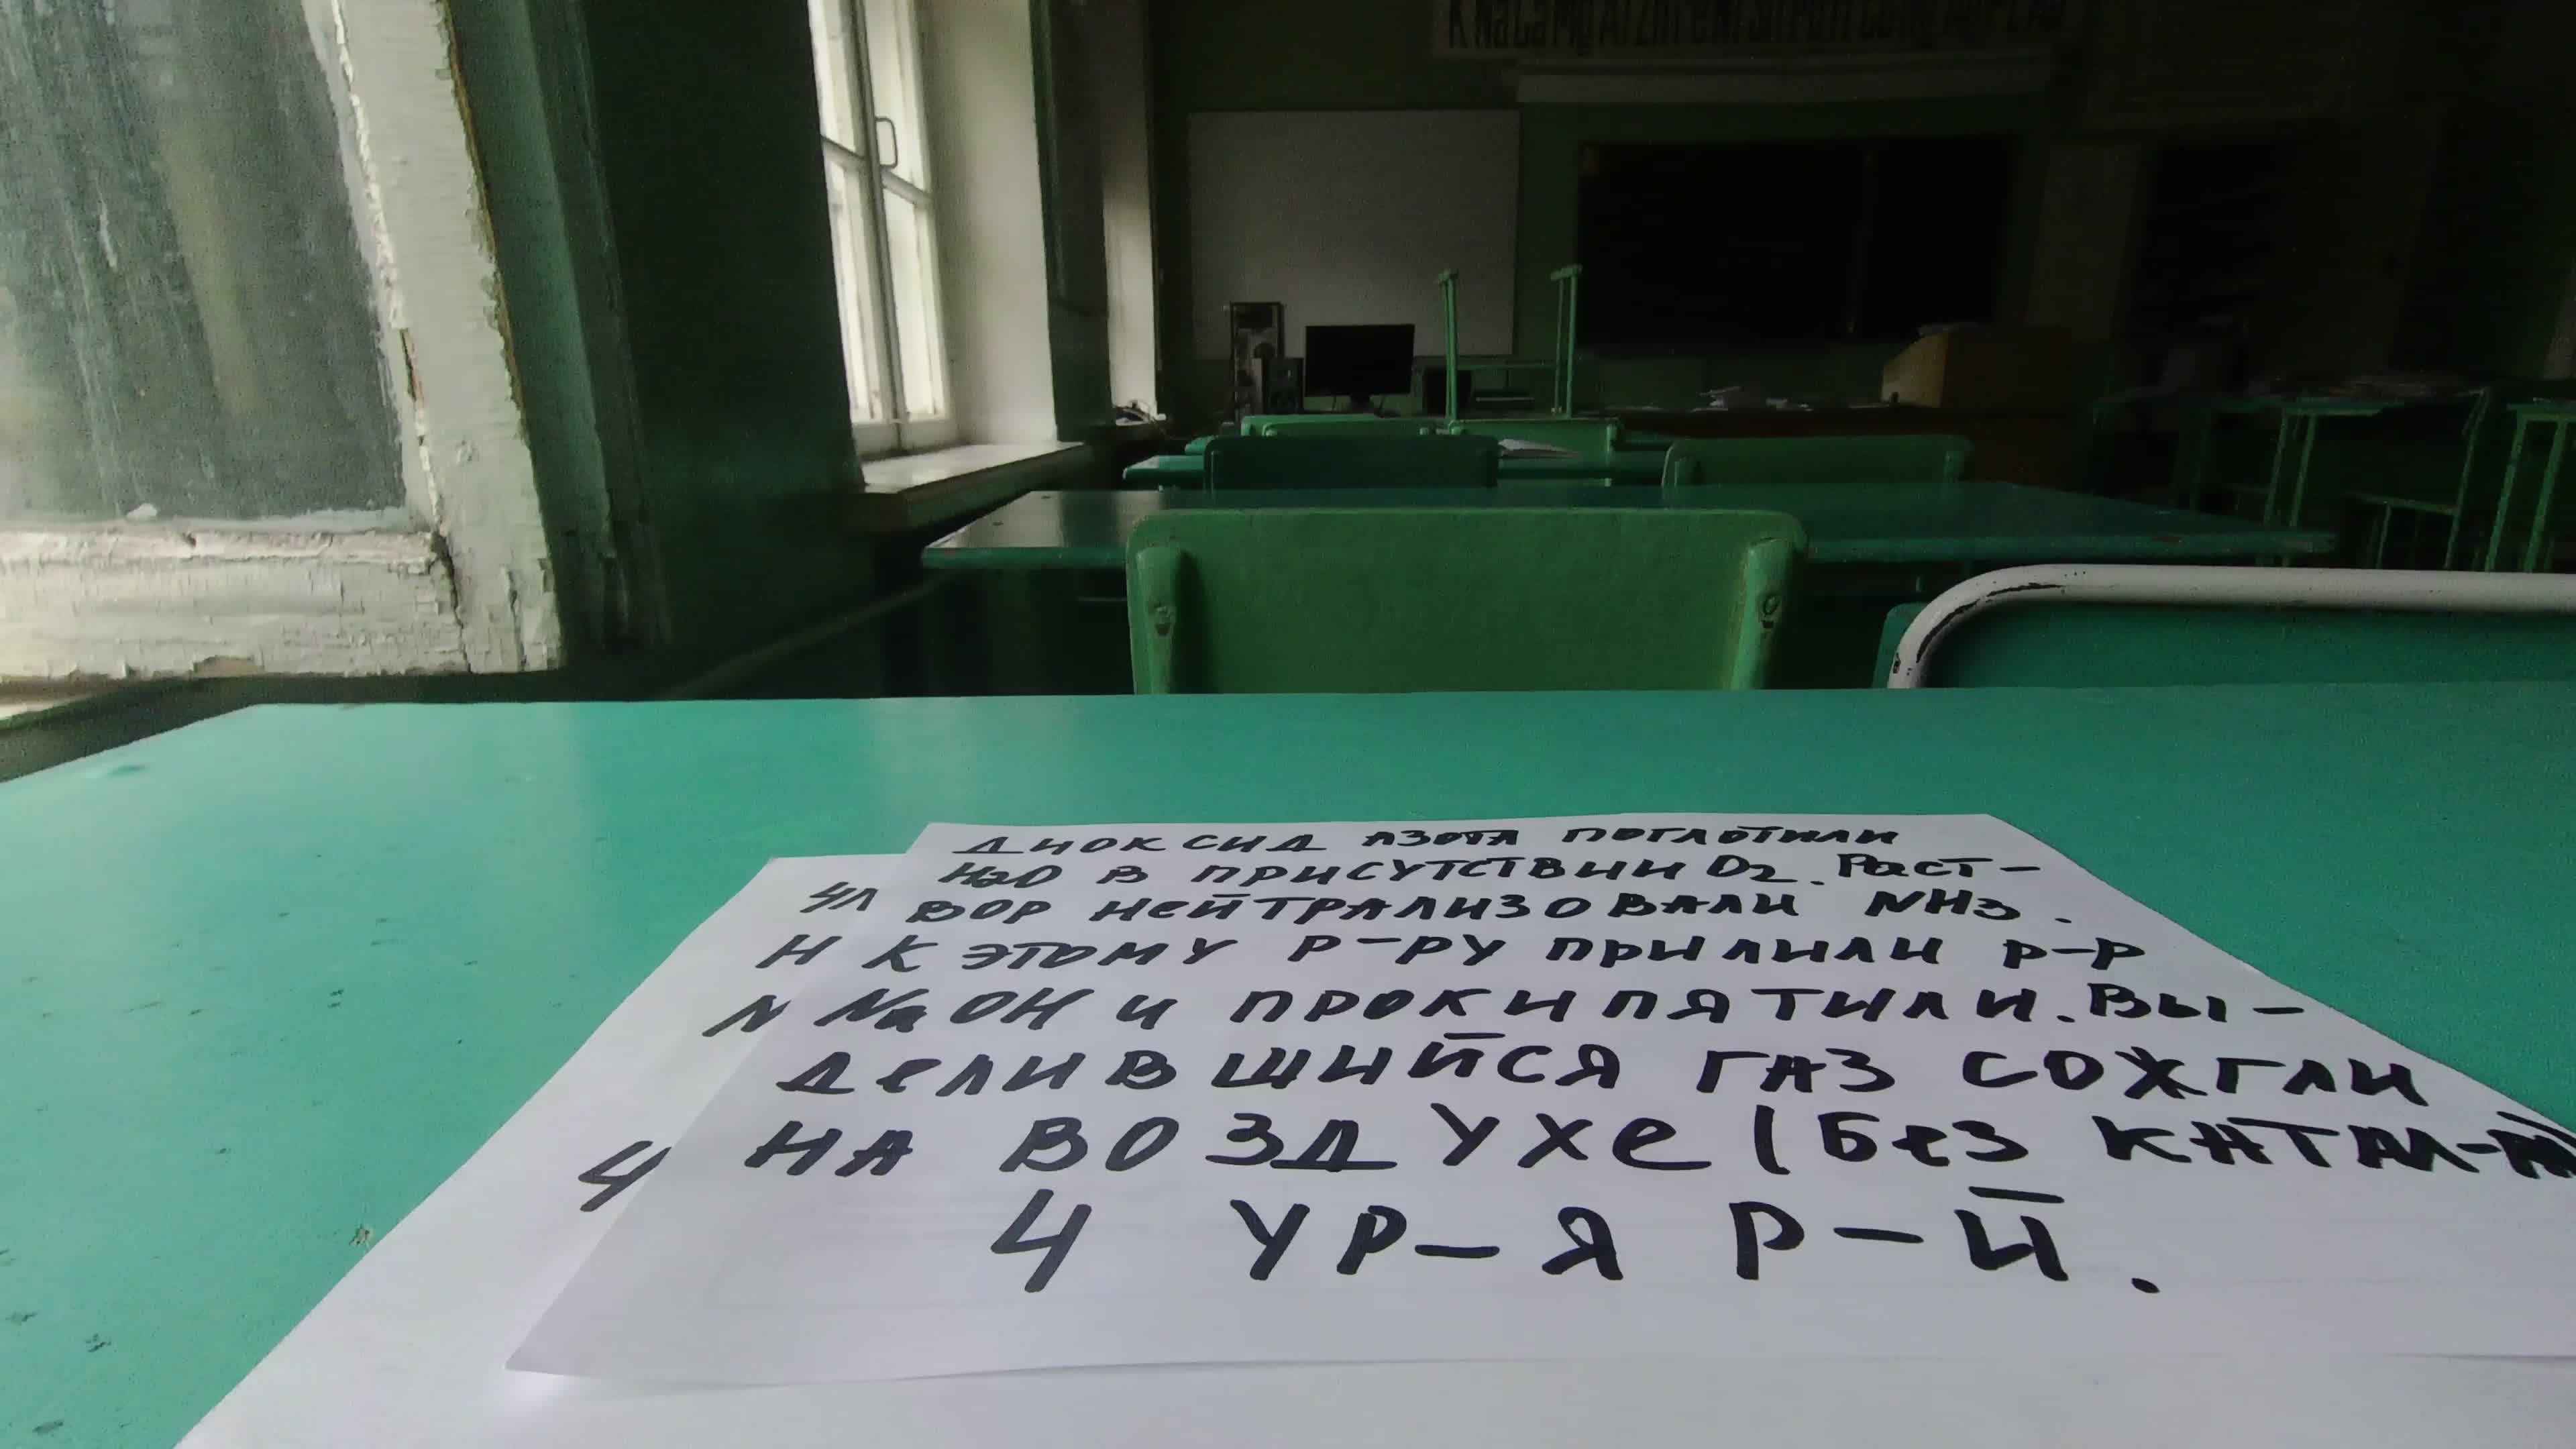 Диоксид азота поглотили
H2O в присутствии O2. Раст-
вор нейтрализовали NH3.
К этому р-ру прилили р-р
NaOH и прокипятили. Вы-
делившийся газ сожгли
на воздухе (без
4 ур-я р-й.
4л
Н
N
4